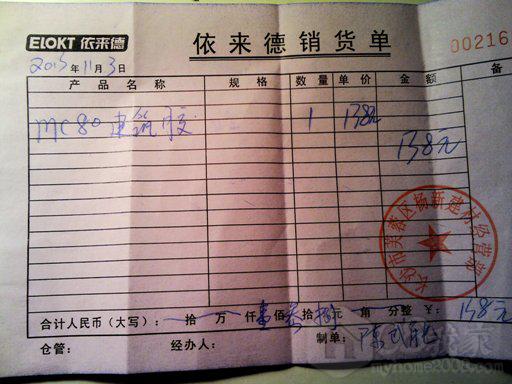 ELOKT 依来德
依来德销货单
00216
2015年11月3日
产品名称 规格 数量 单价 金额 备
MC80 建筑胶 1 138元
138元
长沙市芙蓉区杨新建材经营部
合计人民币(大写): 拾 万 仟 壹佰 叁拾 捌元 角 分整 ¥: 138元
仓管: 经办人: 制单: 陈
myhome2000.com